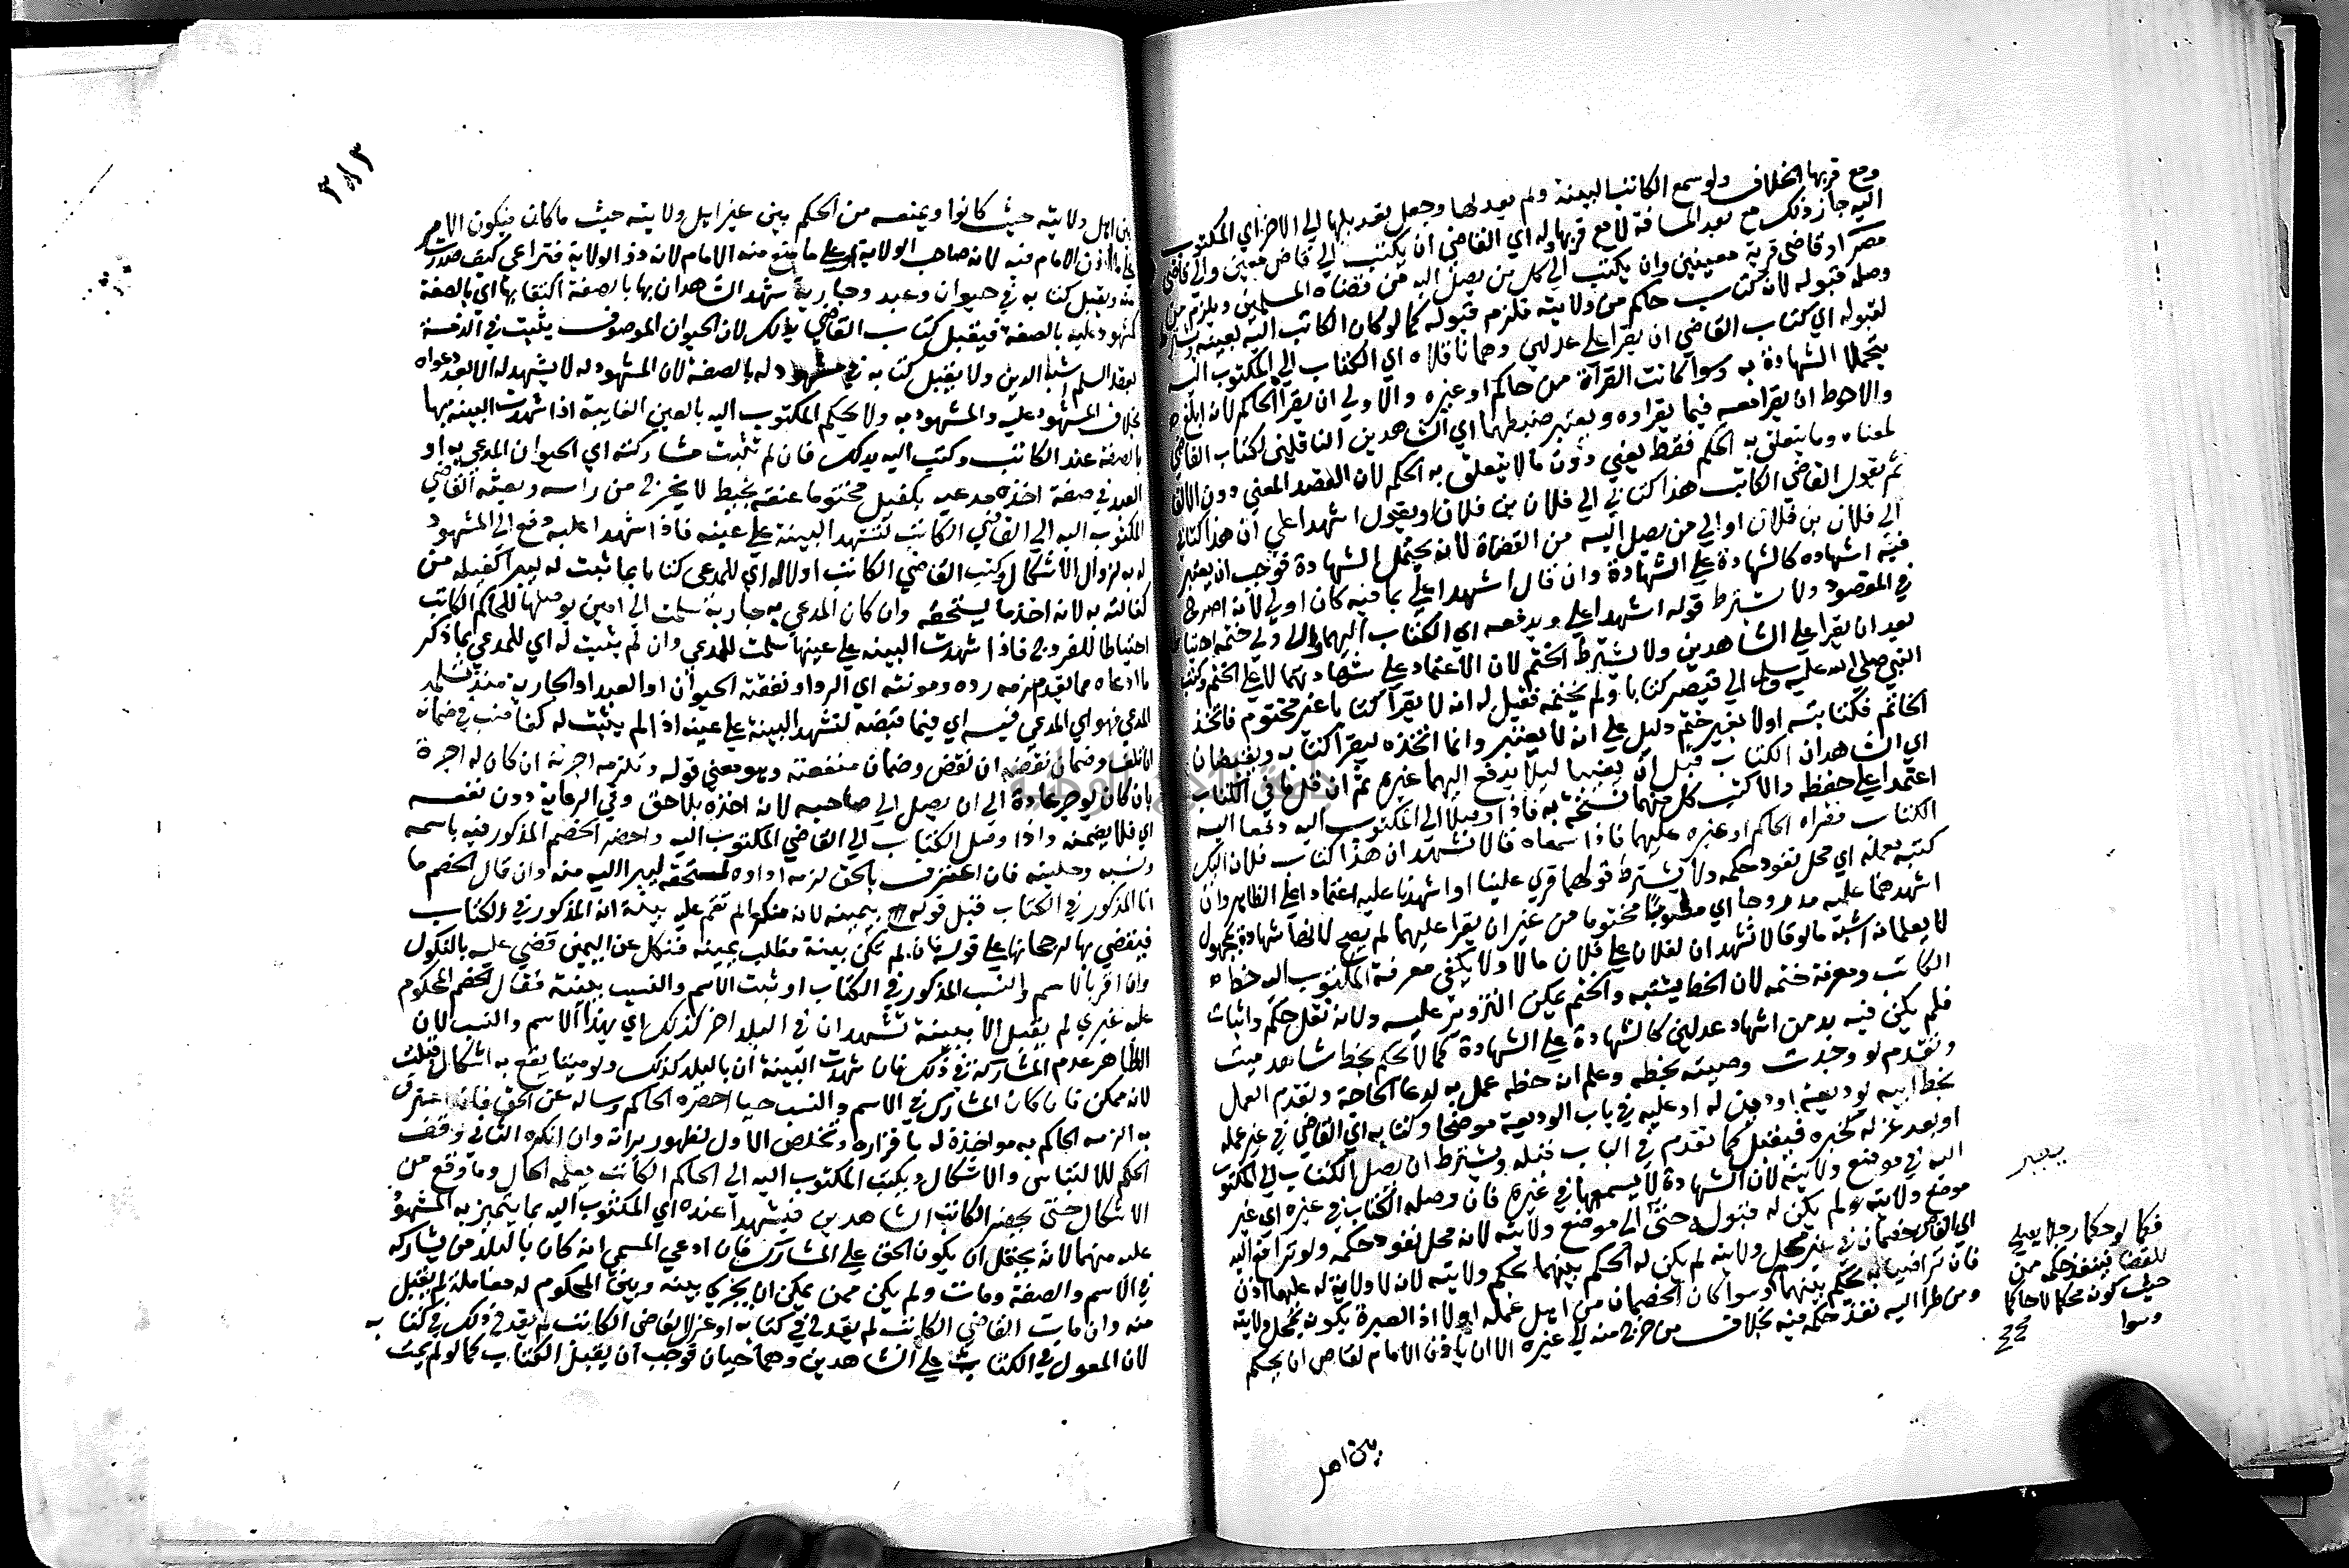 ومع قربها الخلاف ولو سمع الكاتب البينة ولم يعدلها وجعل تعديلها الي الاخر اي المكتوب
اليه جاز ذلك مع بعد المسافة لا مع قربها وله اي القاضي ان يكتب الي قاض معين والي قاضي
مصر او قاضي قرية معينين وان يكتب الي كل من يصل اليه من قضاة المسلمين ويلزم من
وصله قبوله لانه كتاب حاكم من ولايته فلزم قبوله كما لو كان الكاتب اليه بعينه ويشترط
لقبوله اي كتاب القاضي ان يقرا علي عدلين وهما ناقلاه اي الكتاب الي المكتوب اليه
يتحملا الشهادة به وسوا كانت القراة من حاكم او غيره والاولي ان يقرا الحاكم لانه ابلغ
والاحوط ان يقرا معه فيما يقراه ويعتبر ضبطهما اي الشاهدين الناقلين لكتاب القاضي
لمعناه وما يتعلق به الحكم فقط يعني دون ما لا يتعلق به الحكم لان القصد المعني دون الالفا
ثم يقول القاضي الكاتب هذا كتابي الي فلان بن فلان او يقول اشهدا علي ان هذا كتابي
الي فلان بن فلان او الي من يصل اليه من القضاة لانه يحتمل الشهادة فوجب ان يعتبر
فيه اشهاده كالشهادة علي الشهادة وان قال اشهدا علي بما فيه كان اولي لانه اصرح
في المقصود ولا يشترط قوله اشهدا علي ويدفعه اي الكتاب اليهما والاولي ختمه احتياطا
بعد ان يقرا علي الشاهدين ولا يشترط الختم لان الاعتماد علي شهادتهما لا علي الختم وكتب
النبي صلي الله عليه وسلم الي قيصر كتابا ولم يختمه فقيل له انه لا يقرا كتابا غير مختوم فاتخذ
الخاتم فكتابته اولا بغير ختم دليل علي انه لا يعتبر وانما اتخذه ليقرا كتابه ويقبضان
اي الشاهدان الكتاب قبل ان يغيبا ليلا يدفع اليهما غيره ثم ان قل ما في الكتاب
اعتمدا علي حفظه والا كتب كل منهما نسخة به فاذا وصلا الي المكتوب اليه دفعا اليه
الكتاب فقراه الحاكم او غيره عليهما فاذا سمعاه قالا نشهد ان هذا كتاب فلان اليك
كتبه بعمله اي محل نفوذ حكمه ولا يشترط قولهما قري علينا او اشهدنا عليه اعتمادا علي الظاهر وان
اشهدهما عليه مدروجا اي مطويا مختوما من غير ان يقرا عليهما لم يصح لانها شهادة بمجهول
لا يعلمانه اشبه ما لو قالا نشهد ان لفلان علي فلان مالا ولا يكفي معرفة المكتوب اليه خط
الكاتب ومعرفة ختمه لان الخط يشتبه والختم يمكن التزوير عليه ولانه نقل حكم واثبات
فلم يكن فيه بد من اشهاد عدلين كالشهادة علي الشهادة كما لا يحكم بخط شاهد ميت
وتقدم لو وجدت وصيته بخطه وعلم انه خطه عمل به لدعا الحاجة وتقدم العمل
بخط ابيه بوديعة او دين له او عليه في باب الوديعة موضحا وكتابه اي القاضي في غير عمله
او بعد عزله كخبره فيقبل كما تقدم في الباب قبله ويشترط ان يصل الكتاب الي المكتوب
اليه في موضع ولايته لان الشهادة لا يسمعها في غيره فان وصله الكتاب في غيره اي غير
موضع ولايته لم يكن له قبوله حتي الي موضع ولايته لانه محل نفوذ حكمه ولو ترافع اليه
اي القاضي خصمان في غير محل ولايته لم يكن له الحكم بينهما بحكم ولايته لانه لا ولاية له عليهما اذن
فان تراضيا به تحكم بينهما وسوا كان الخصمان من اهل عمله او لا اذ العبرة بكونه بمحل ولايته
ومن طرا اليه نفذ حكمه فيه بخلاف من خرج منه الي غيره الا ان ياذن الامام لقاض ان يحكم
ييسر
فكما لو حكما رجلا يصلح
للقضا فينفذ حكمه من
حيث كونه محكما لا حاكما
وسوا
بين اهل
٣٨٣
بين اهل ولايته حيث كانوا ويمنعه من الحكم بين غير اهل ولايته حيث ما كان فيكون الامر
علي ما اذن الامام فيه لانه صاحب الولاية او علي ما منع منه الامام لانه ذو الولاية فتراعي كيف صدرت
منه ويقبل كتابه في حيوان وعبد وجارية شهد الشاهدان بها بالصفة اكتفا بها اي بالصفة
كمشهود عليه بالصفة فيقبل كتاب القاضي بذلك لان الحيوان الموصوف يثبت في الذمة
بعقد السلم اشبه الدين ولا يقبل كتابه في مشهود له بالصفة لان المشهود له لا يشهد له الا بعد دعواه
بخلاف المشهود عليه والمشهود به ولا يحكم المكتوب اليه بالعين الغايبة اذا شهدت البينة بها
بالصفة عند الكاتب وكتب اليه بذلك فان لم تثبت مشاركته اي الحيوان المدعي به او
العبد في صفة اخذه مدعيه بكفيل مختوما عنقه بخيط لا يخرج من راسه وبعثه القاضي
المكتوب اليه الي القاضي الكاتب لتشهد البينة علي عينه فاذا شهدا عليه دفع الي المشهود
له به لزوال الاشكال وكتب القاضي الكاتب اولا له اي للمدعي كتابا بما ثبت له ليبرا كفيله من
كفالته به لانه اخذ ما يستحقه وان كان المدعي به جارية سلمت الي امين يوصلها للحاكم الكاتب
احتياطا للفروج فاذا شهدت البينة علي عينها سلمت للمدعي وان لم يثبت له اي للمدعي بما ذكر
ما ادعاه مما تقدم لزمه رده ومونته اي الرد ونفقة الحيوان او العبد او الجارية منذ تسلمه
المدعي فهو اي المدعي فيه اي فيما قبضه لتشهد البينة علي عينه اذا لم يثبت له كغاصب في ضمانه
ان تلف وضمان نقصه ان نقص وضمان منفعته وهو معني قوله وتلزمه اجرته ان كان له اجرة
بان كان يوجر عادة الي ان يصل الي صاحبه لانه اخذه بلا حق وفي الرعاية دون نفعه
اي فلا يضمنه واذا وصل الكتاب الي القاضي المكتوب اليه واحضر الخصم المذكور فيه باسمه
ونسبه وحليته فان اعترف بالحق لزمه اداوه لمستحقه ليبرا اليه منه وان قال الخصم ما
انا المذكور في الكتاب قبل قوله بيمينه لانه منكر ما لم تقم عليه بينة انه المذكور في الكتاب
فيقضي بها لرجحانها علي قوله فان لم تكن بينة فطلب يمينه فنكل عن اليمين قضي عليه بالنكول
وان اقر بالاسم والنسب المذكور في الكتاب او ثبت الاسم والنسب ببينة فقال الخصم المحكوم
عليه غيري لم يقبل الا ببينة تشهد ان في البلد اخر كذلك اي بهذا الاسم والنسب لان
الظاهر عدم المشاركة في ذلك فان شهدت البينة ان بالبلد كذلك ولو ميتا يقع به اشكال قبلت
لانه ممكن فان كان المشارك في الاسم والنسب حيا احضره الحاكم وساله عن الحق فان اعترف
به الزمه الحاكم به مواخذة له باقراره وتخلص الاول لظهور براته وان انكره الثاني وقف
الحكم للالتباس والاشكال ويكتب المكتوب اليه الي الحاكم الكاتب يعلمه الحال وما وقع من
الاشكال حتي يحضر الكاتب الشاهدين فيشهدا عنده اي المكتوب اليه بما يتميز به المشهود
عليه منهما لانه يحتمل ان يكون الحق علي المشارك فان ادعي المسمي انه كان بالبلد من يشاركه
في الاسم والصفة ومات ولم يكن ممن يمكن ان يجري بينه وبين المحكوم له معاملة لم يقبل
منه وان مات القاضي الكاتب لم يقدح في كتابه او عزل القاضي الكاتب لم يقدح ذلك في كتابه
لان المعول في الكتاب علي الشاهدين وهما حيان فوجب ان يقبل الكتاب كما لو لم يمت